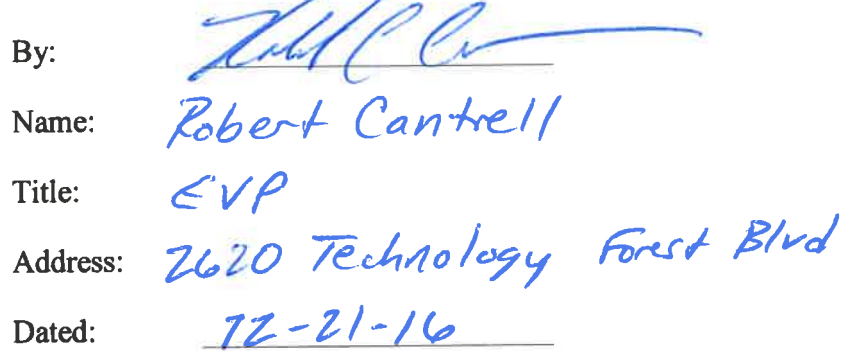 By:
Name: Robert Cantrell
Title: EVP
Address: 2620 Technology Forest Blvd
Dated: 12-21-16